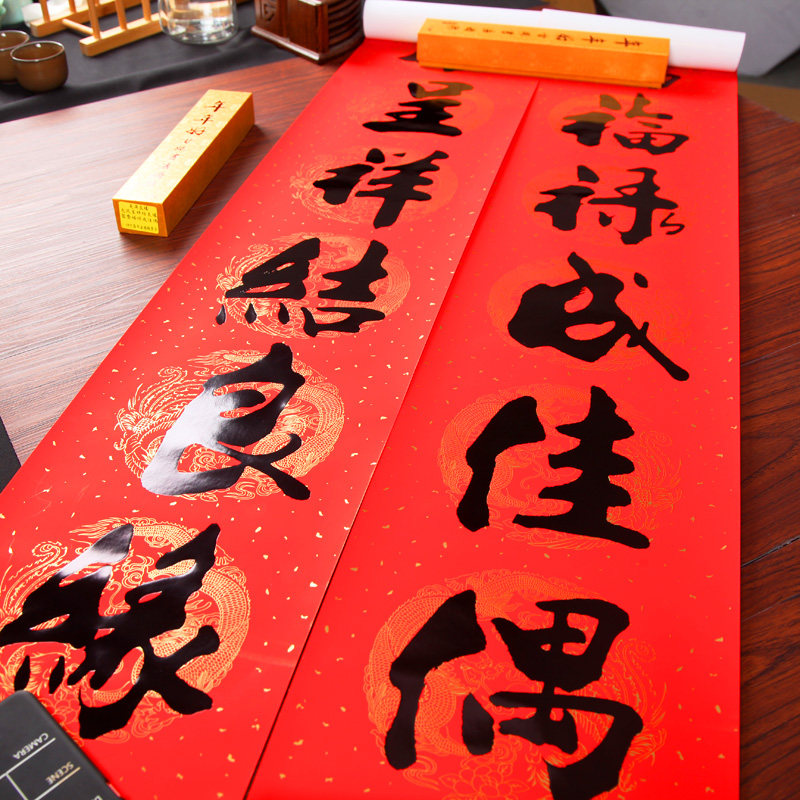 福禄成佳偶
呈祥結良緣
年年好
CAMERA
SCENE